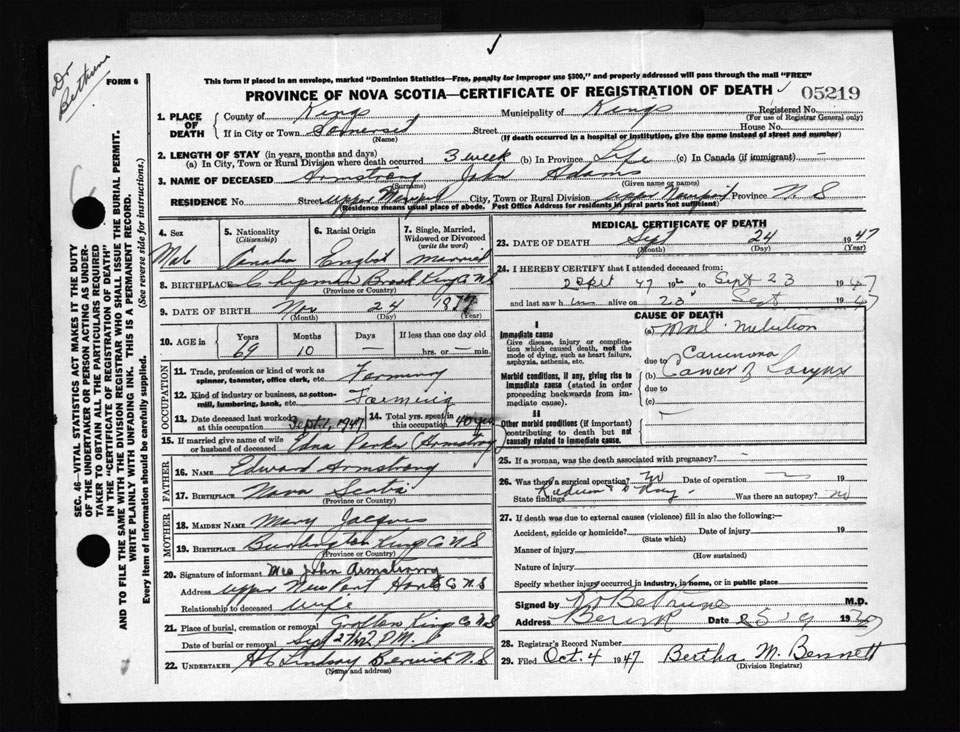 Dr Bethune
FORM 6
This form if placed in an envelope, marked "Dominion Statistics—Free, penalty for improper use $300," and properly addressed will pass through the mail "FREE"
PROVINCE OF NOVA SCOTIA—CERTIFICATE OF REGISTRATION OF DEATH
05219
1. PLACE OF DEATH
County of Kings Municipality of Kings Registered No.
(For use of Registrar General only)
If in City or Town Somerset Street House No.
(Name) (If death occurred in a hospital or institution, give the name instead of street and number)
2. LENGTH OF STAY (in years, months and days)
(a) In City, Town or Rural Division where death occurred 3 week (b) In Province Life (c) In Canada (if immigrant) —
3. NAME OF DECEASED Armstrong John Adams
(Surname) (Given name or names)
RESIDENCE No. Street Upper Newport City, Town or Rural Division Upper Newport Province N S
(Residence means usual place of abode. Post Office Address for residents in rural parts not sufficient)
4. Sex
Male
5. Nationality
(Citizenship)
Canadian
6. Racial Origin
English
7. Single, Married, Widowed or Divorced
(write the word)
Married
8. BIRTHPLACE Chipman Brook Kings Co NS
(Province or Country)
9. DATE OF BIRTH Nov 24 1877
(Month) (Day) (Year)
10. AGE in Years Months Days If less than one day old
69 10 — — hrs. or — min.
OCCUPATION
11. Trade, profession or kind of work as spinner, teamster, office clerk, etc. Farming
12. Kind of industry or business, as cotton-mill, lumbering, bank, etc. Farming
13. Date deceased last worked at this occupation Sept. 1, 1947 14. Total yrs. spent in this occupation 40 yrs
15. If married give name of wife or husband of deceased Edna Parker Armstrong
FATHER
16. NAME Edward Armstrong
17. BIRTHPLACE Nova Scotia
(Province or Country)
MOTHER
18. MAIDEN NAME Mary Jacques
19. BIRTHPLACE Burlington Kings Co N.S
(Province or Country)
20. Signature of informant Mrs John Armstrong
Address Upper New Port Hants Co N.S
Relationship to deceased Wife
21. Place of burial, cremation or removal Grafton Kings Co NS
Date of burial or removal Sept 27/47 2 P.M.
22. UNDERTAKER H C Lindsay Berwick N.S
(Name and address)
MEDICAL CERTIFICATE OF DEATH
23. DATE OF DEATH Sept 24 1947
(Month) (Day) (Year)
24. I HEREBY CERTIFY that I attended deceased from
Sept 47 to Sept 23 1947
and last saw h im alive on 23 Sept 1947
CAUSE OF DEATH
I
Immediate cause
Give disease, injury or complication which caused death, not the mode of dying, such as heart failure, asphyxia, asthenia, etc.
(a) Mal nutrition
due to
Morbid conditions, if any, giving rise to immediate cause (stated in order proceeding backwards from immediate cause).
(b) Carcinoma Cancer of Larynx
due to
(c) —
II
Other morbid conditions (if important) contributing to death but not causally related to immediate cause.
25. If a woman, was the death associated with pregnancy? —
26. Was there a surgical operation? no Date of operation — 19
State findings Radium & Xray Was there an autopsy? no
27. If death was due to external causes (violence) fill in also the following:—
Accident, suicide or homicide? Date of injury 19
(State which)
Manner of injury
(How sustained)
Nature of injury
Specify whether injury occurred in industry, in home, or in public place
Signed by Bethune M.D.
Address Berwick Date 25 19
28. Registrar's Record Number
29. Filed Oct. 4 1947 Bertha M. Bennett
(Division Registrar)
SEC. 46—VITAL STATISTICS ACT MAKES IT THE DUTY
OF THE UNDERTAKER OR PERSON ACTING AS UNDER-
TAKER TO OBTAIN ALL THE PARTICULARS REQUIRED
IN THE "CERTIFICATE OF REGISTRATION OF DEATH"
AND TO FILE THE SAME WITH THE DIVISION REGISTRAR WHO SHALL ISSUE THE BURIAL PERMIT.
WRITE PLAINLY WITH UNFADING INK. THIS IS A PERMANENT RECORD.
Every item of information should be carefully supplied. (See reverse side for instructions.)